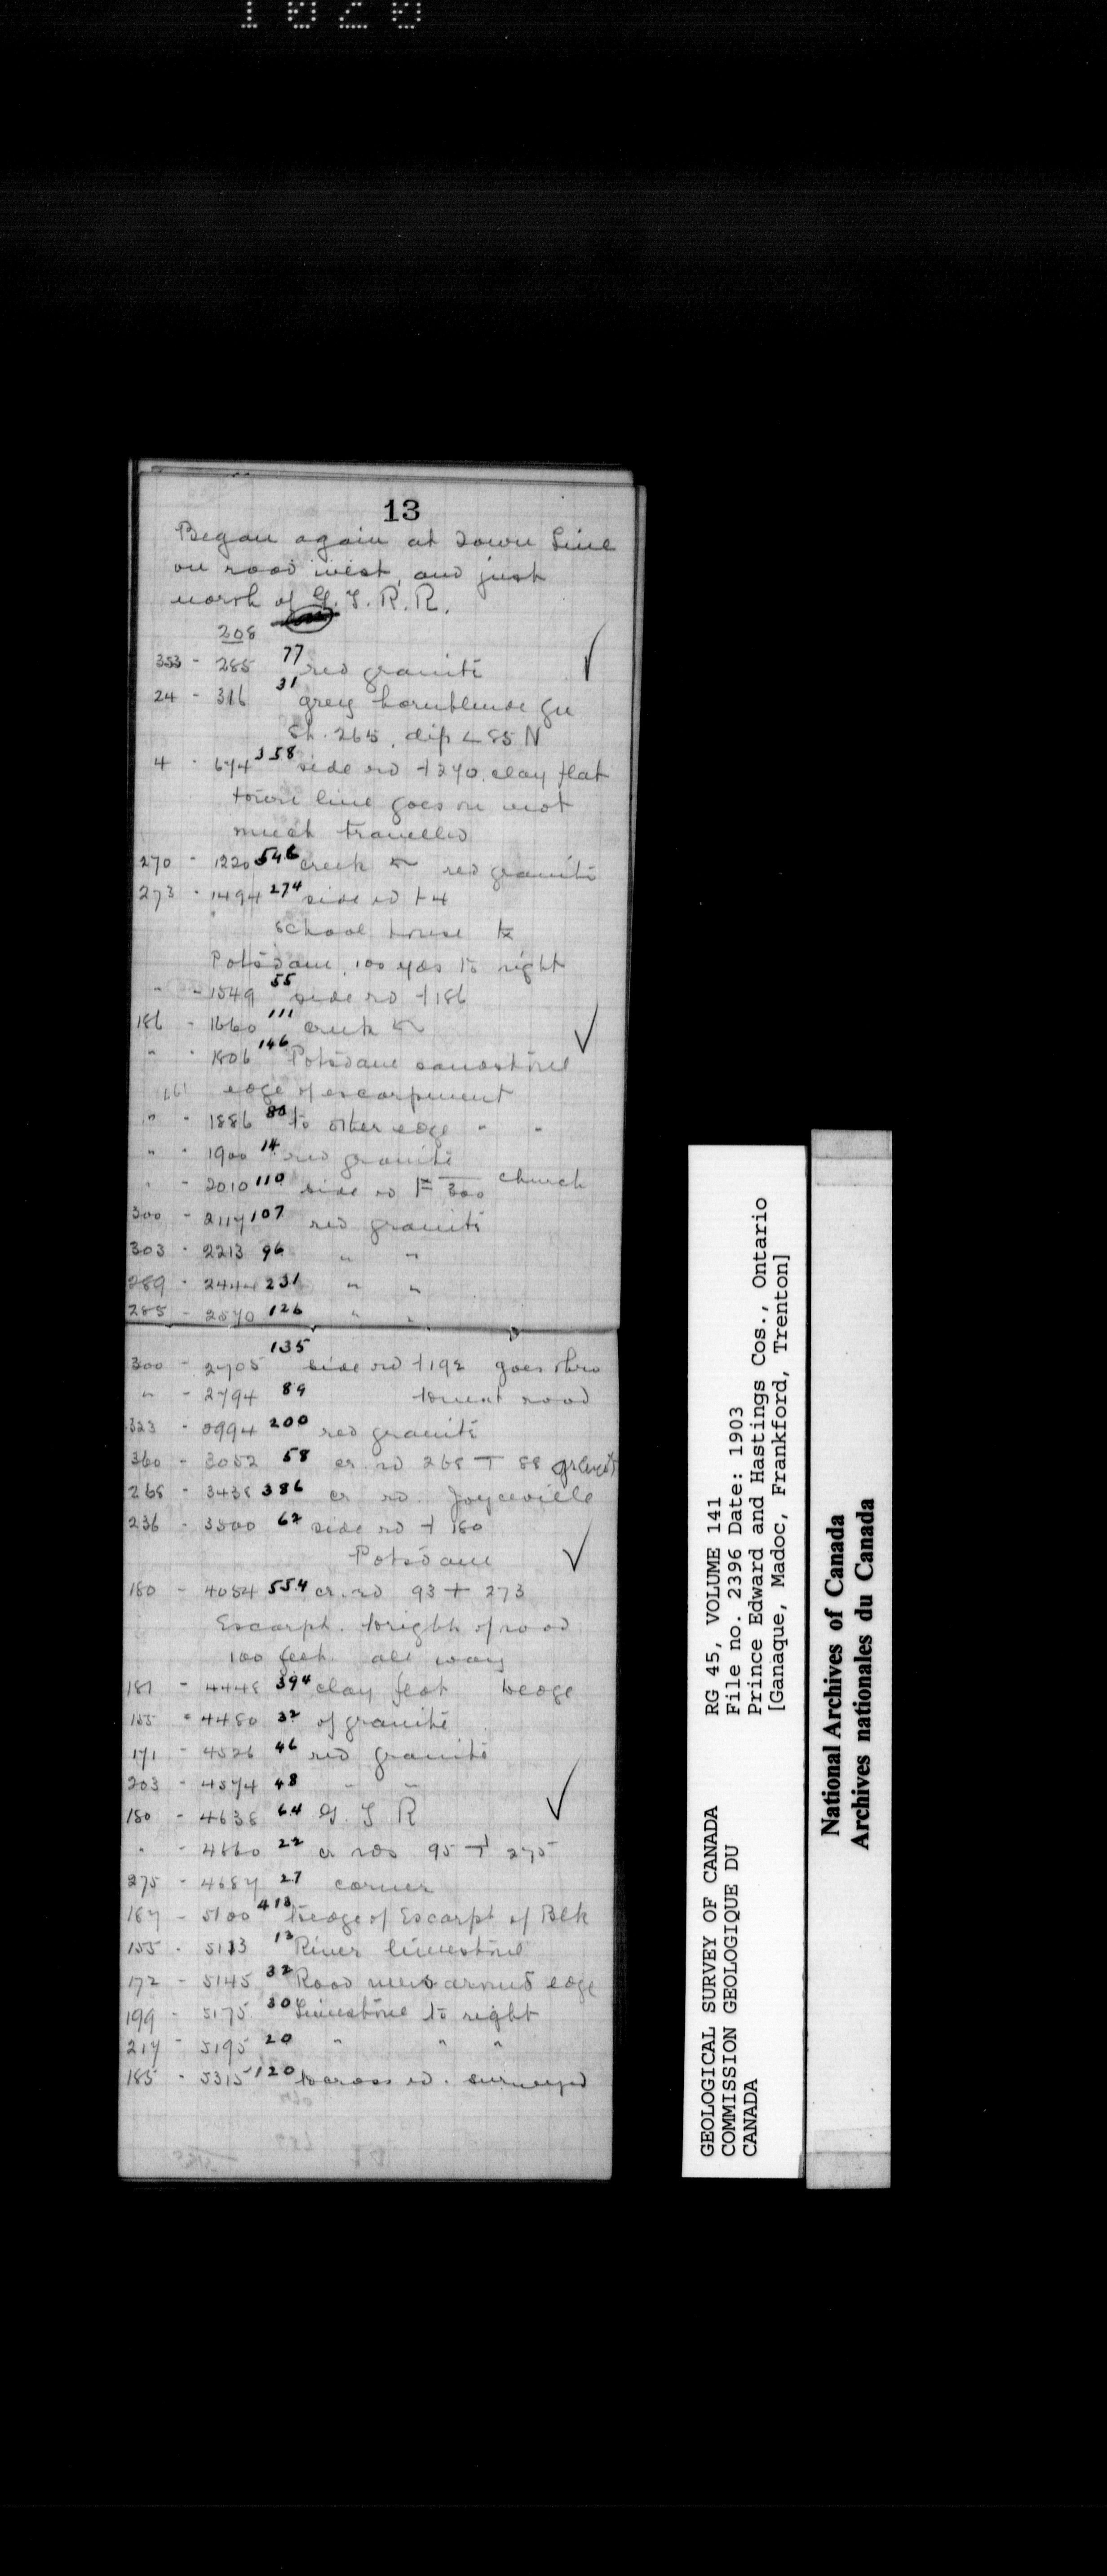 1020
13
Began again at Town Line
on road west, and just
north of G. T. R. R.
208
353 - 285 77 red granite
24 - 316 31 grey hornblende gn
St. 265. dip < 85 N
4 - 674 358 side rd ⊣ 270. clay flat
town line goes on not
much travelled
270 - 1220 546 creek red granite
273 - 1494 274 side rd ⊢ 4
school house
Potsdam, 100 yds to right
" - 1549 55 side rd ⊣ 186
186 - 1660 111 creek
" - 1806 146 Potsdam sandstone
edge of escarpment
" - 1886 80 to other edge " "
" - 1900 14 red granite
" - 2010 110 side rd ⊢ 300 church
300 - 2117 107 red granite
303 - 2213 96 " "
289 - 2444 231 " "
285 - 2570 126 " "
135
300 - 2705 side rd ⊣ 192 goes thro
" - 2794 89 to next road
323 - 2994 200 red granite
360 - 3052 58 cr. rd 268 ⊤ 88
268 - 3438 386 cr rd. Joyceville
236 - 3500 62 side rd ⊣ 180
Potsdam
180 - 4054 554 cr. rd 93 + 273
Escarpt. to right of road
100 feet all way
181 - 4448 394 clay flat to edge
155 - 4480 32 of granite
171 - 4526 46 red granite
203 - 4574 48 " "
180 - 4638 64 G. T. R
" - 4660 22 cr rds 95 ⊤ 275
275 - 4687 27 corner
187 - 5100 413 to edge of Escarpt of Blk
155 - 5113 13 River limestone
172 - 5145 32 Road runs around edge
199 - 5175 30 Limestone to right
217 - 5195 20 " " "
185 - 5315 120 to cross rd. surveyed
GEOLOGICAL SURVEY OF CANADA
COMMISSION GEOLOGIQUE DU
CANADA
RG 45, VOLUME 141
File no. 2396 Date: 1903
Prince Edward and Hastings Cos., Ontario
[Ganaque, Madoc, Frankford, Trenton]
National Archives of Canada
Archives nationales du Canada